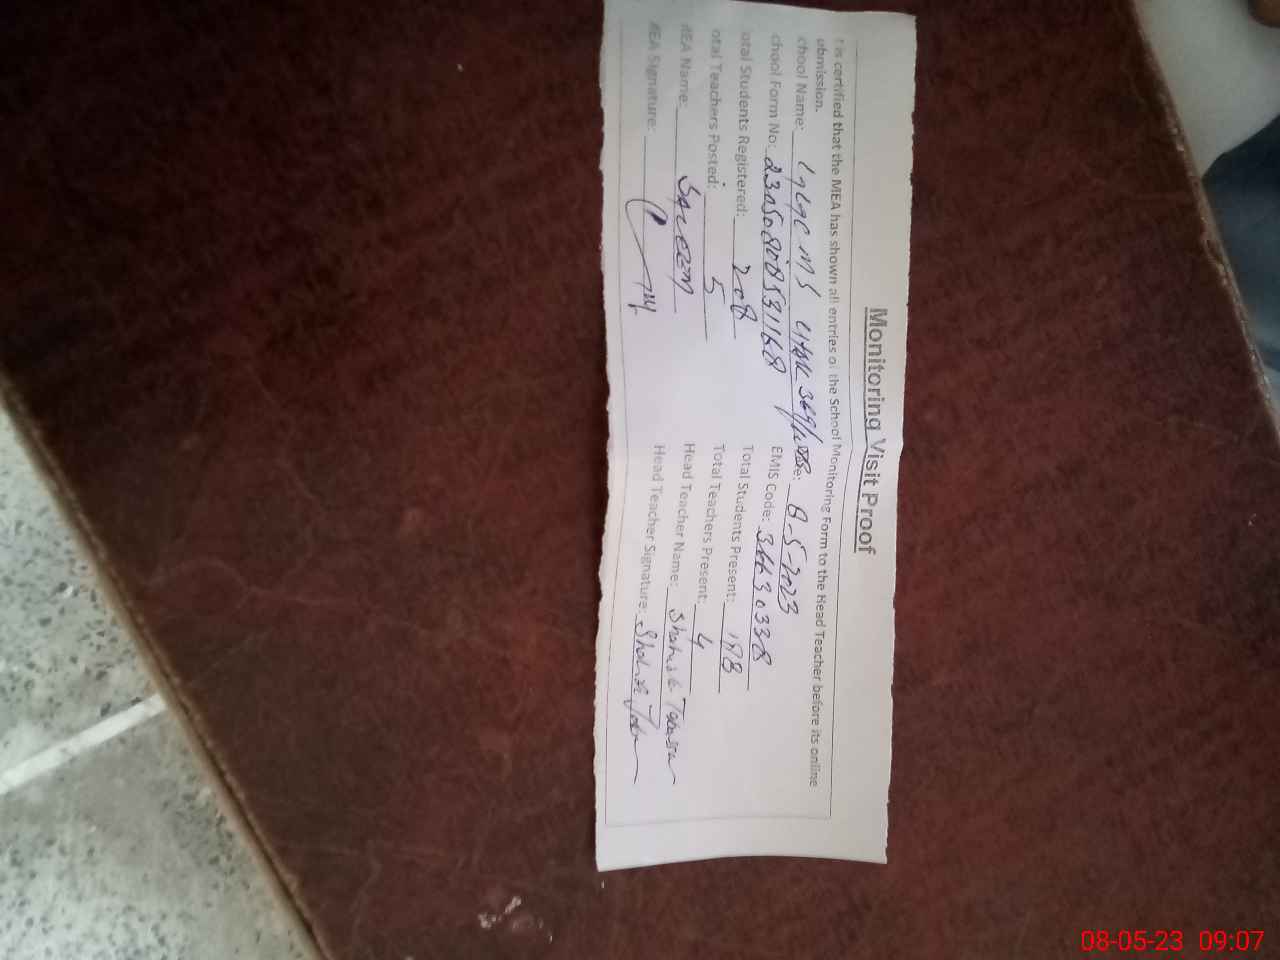 Monitoring Visit Proof
t is certified that the MEA has shown all entries of the School Monitoring Form to the Head Teacher before its online
ubmission.
chool Name: MS 369/WB e: 8-5-2023
chool Form No: EMIS Code: 36630338
otal Students Registered: 208 Total Students Present: 188
otal Teachers Posted: 5 Total Teachers Present: 4
MEA Name: Saleem Head Teacher Name:
MEA Signature: Head Teacher Signature:
08-05-23 09:07